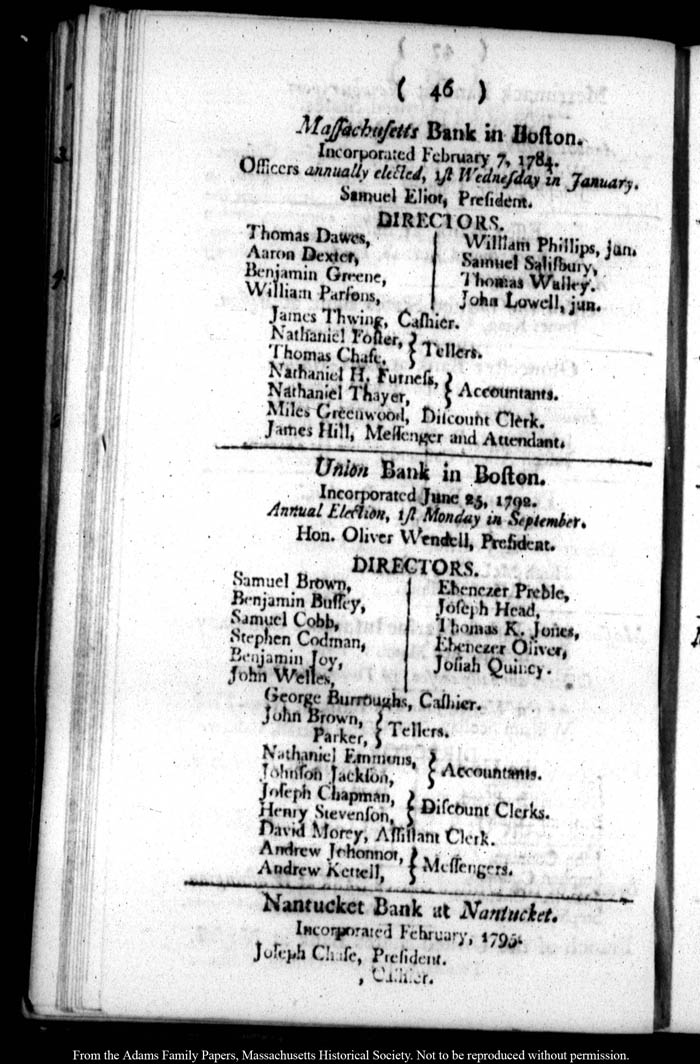 ( 46 )
Maſſachuſetts Bank in Boſton.
Incorporated February 7, 1784.
Officers annually elected, 1ſt Wedneſday in January.
Samuel Eliot, Preſident.
DIRECTORS.
Thomas Dawes,
Aaron Dexter,
Benjamin Greene,
William Parſons,
William Phillips, jun.
Samuel Saliſbury,
Thomas Walley.
John Lowell, jun.
James Thwing, Caſhier.
Nathaniel Foſter,
Thomas Chaſe,
} Tellers.
Nathaniel H. Furneſs,
Nathaniel Thayer,
} Accountants.
Miles Greenwood, Diſcount Clerk.
James Hill, Meſſenger and Attendant.
Union Bank in Boſton.
Incorporated June 25, 1792.
Annual Election, 1ſt Monday in September.
Hon. Oliver Wendell, Preſident.
DIRECTORS.
Samuel Brown,
Benjamin Buſſey,
Samuel Cobb,
Stephen Codman,
Benjamin Joy,
John Welles,
Ebenezer Preble,
Joſeph Head,
Thomas K. Jones,
Ebenezer Oliver,
Joſiah Quincy.
George Burroughs, Caſhier.
John Brown,
Parker,
} Tellers.
Nathaniel Emmons,
Johnſon Jackſon,
} Accountants.
Joſeph Chapman,
Henry Stevenſon,
} Diſcount Clerks.
David Morey, Aſſiſtant Clerk.
Andrew Johonnot,
Andrew Kettell,
} Meſſengers.
Nantucket Bank at Nantucket.
Incorporated February, 1795.
Joſeph Chaſe, Preſident.
, Caſhier.
From the Adams Family Papers, Massachusetts Historical Society. Not to be reproduced without permission.